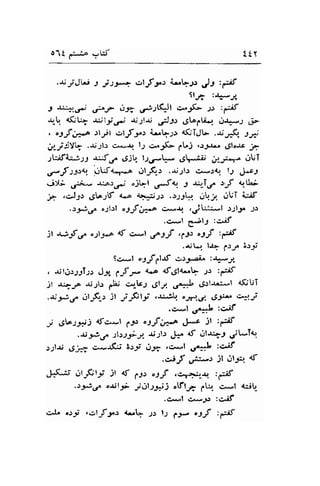 ۴۴۲ کتاب هشتم ۵۶۴
گفتم: ولی درجامعهٔ دموکرات جسورتر و فعال‌ترند.
پرسید: چرا؟
گفتم: در حکومت الیگارشی چون حرمتی نمی‌بینند و
حق رسیدن بمقام‌های دولتی ندارند نمی‌توانند چنانکه باید
نیرو بگیرند. حال‌آنکه درجامعهٔ دموکرات افراد همین‌گروه،
جز عده‌ای معدود، زمام حکومت را بدست دارند. چالاک‌ترین
آنان مهمترین نقشهای سیاسی‌را بازی می‌کنند ورشتهٔ‌گفتار
وعمل را به‌دست دارند. دیگران همهمه‌کنان به‌دورکرسی
خطابه گرد می‌آیند و به‌کسی اجازه نمی‌دهند سخنی خلاف
گفتهٔ آنان بزبان بیاورد. درنتیجه همه کارهای دولت، جز
در موارد استثنائی، بدست همین‌گروه اداره می‌شود.
گفت: واضح است.
گفتم: گروه دوم، گروهی است که همواره می‌کوشد از
تودهٔ مردم جدا بماند.
پرسید: مقصودت کدام‌گروه است؟
گفتم: در جامعه‌ای‌که همه سرگرم پول درآوردن‌اند،
آنانکه استعدادی طبیعی برای رعایت نظم دارند هرچند از
تربیت معنوی بی‌بهره باشند، توانگرتر از دیگران می‌شوند.
گفت: طبیعی است.
گفتم: از عسل همین‌گروه دوم است‌که زنبورهای نر
به‌آسانی وچندان که میل دارند برخوردار می‌شوند.
گفت: طبیعی است، چون تودهٔ تنگدست چیزی ندارد
که بتوان از دستش گرفت.
گفتم: بدینجهت، گروه دوم که از توانگران تشکیل
یافته است بنام چراگاه زنبوران‌نر خوانده می‌شود.
گفت: درست است.
گفتم: گروه سوم را در جامعه دموکرات، توده ملت